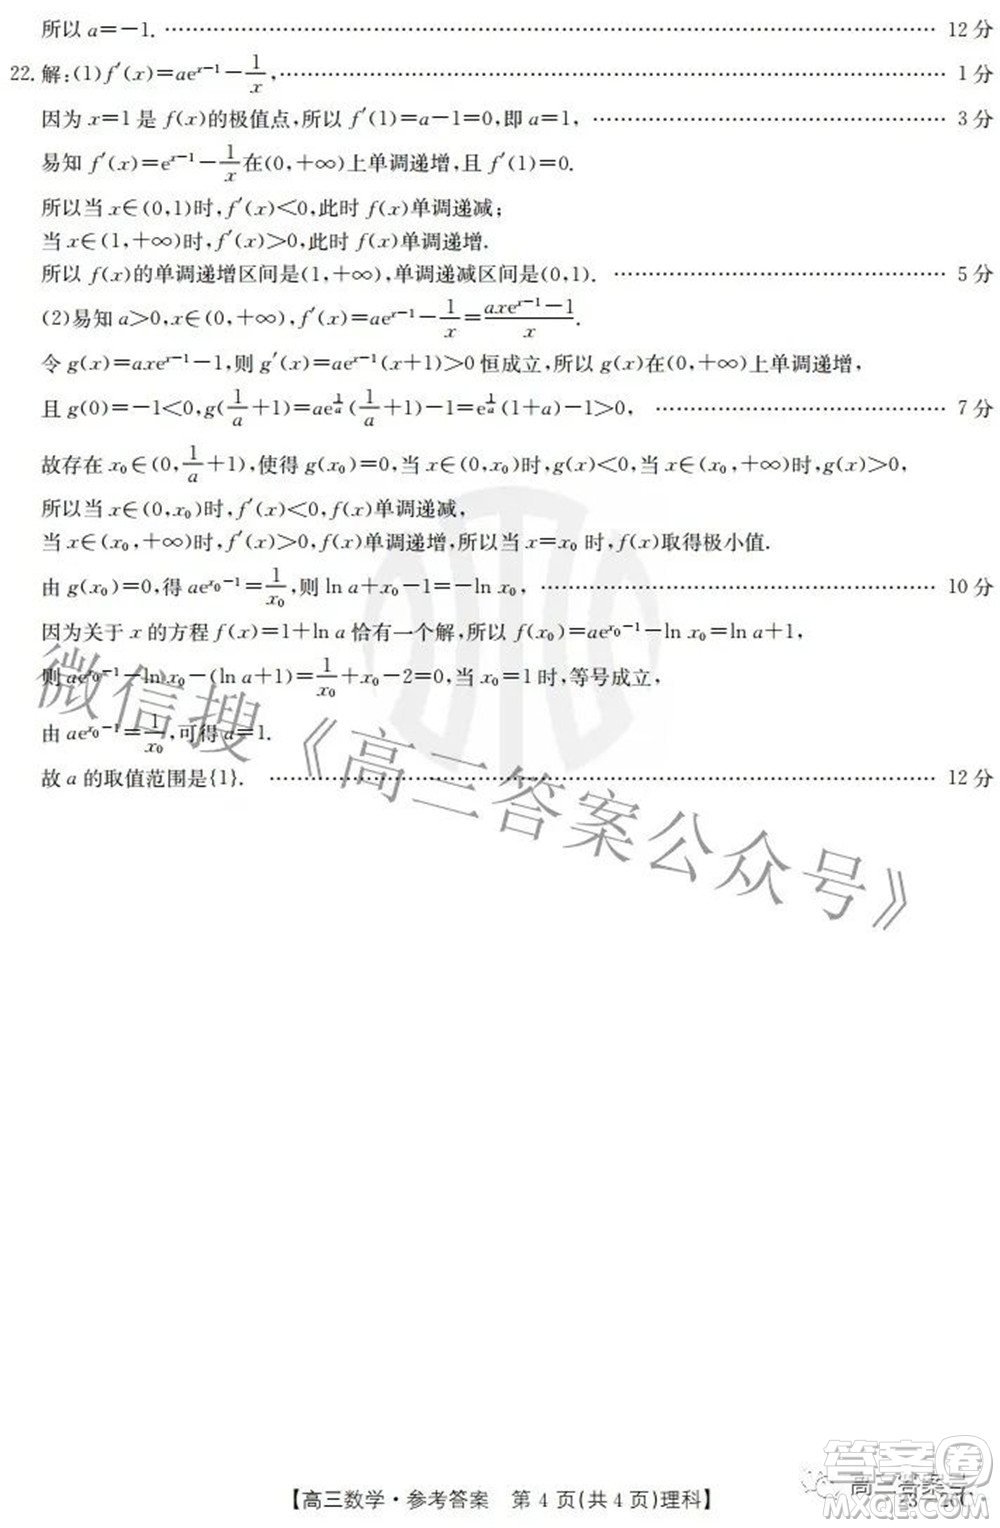 所以 a=-1. 12 分
22. 解:(1)f′(x)=ae^{x-1}-1/x, 1 分
因为 x=1 是 f(x)的极值点,所以 f′(1)=a-1=0,即 a=1, 3 分
易知 f′(x)=e^{x-1}-1/x在(0,+∞)上单调递增,且 f′(1)=0.
所以当 x∈(0,1)时,f′(x)<0,此时 f(x)单调递减;
当 x∈(1,+∞)时,f′(x)>0,此时 f(x)单调递增.
所以 f(x)的单调递增区间是(1,+∞),单调递减区间是(0,1). 5 分
(2)易知 a>0,x∈(0,+∞),f′(x)=ae^{x-1}-1/x=(axe^{x-1}-1)/x.
令 g(x)=axe^{x-1}-1,则 g′(x)=ae^{x-1}(x+1)>0 恒成立,所以 g(x)在(0,+∞)上单调递增,
且 g(0)=-1<0,g(1/a+1)=ae^{1/a}(1/a+1)-1=e^{1/a}(1+a)-1>0, 7 分
故存在 x₀∈(0,1/a+1),使得 g(x₀)=0,当 x∈(0,x₀)时,g(x)<0,当 x∈(x₀,+∞)时,g(x)>0,
所以当 x∈(0,x₀)时,f′(x)<0,f(x)单调递减,
当 x∈(x₀,+∞)时,f′(x)>0,f(x)单调递增,所以当 x=x₀ 时,f(x)取得极小值.
由 g(x₀)=0,得 ae^{x₀-1}=1/x₀,则 ln a+x₀-1=-ln x₀, 10 分
因为关于 x 的方程 f(x)=1+ln a 恰有一个解,所以 f(x₀)=ae^{x₀-1}-ln x₀=ln a+1,
则 ae^{x₀-1}-ln x₀-(ln a+1)=1/x₀+x₀-2=0,当 x₀=1 时,等号成立,
由 ae^{x₀-1}=1/x₀,可得 a=1.
故 a 的取值范围是{1}. 12 分
微信搜《高三答案公众号》
【高三数学·参考答案 第 4 页(共 4 页)理科】
答案圈
高三答案号